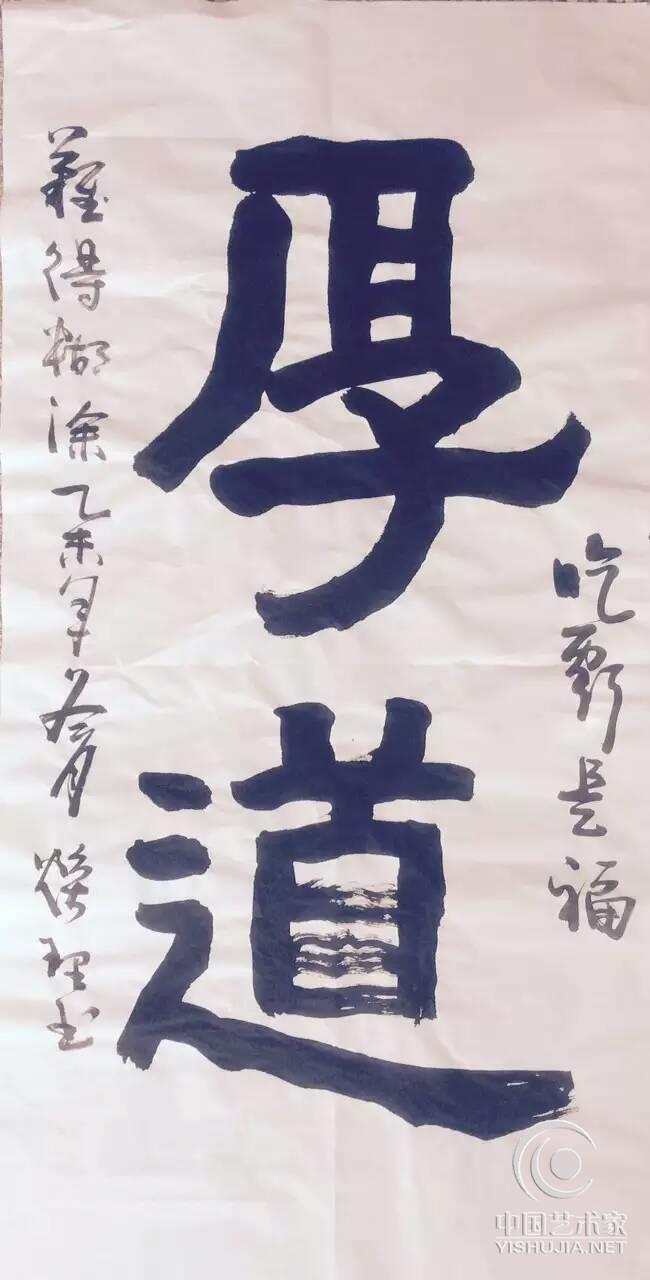 吃亏是福
厚道
難得糊涂乙未年春月燦理书
中国艺术家
YISHUJIA.NET